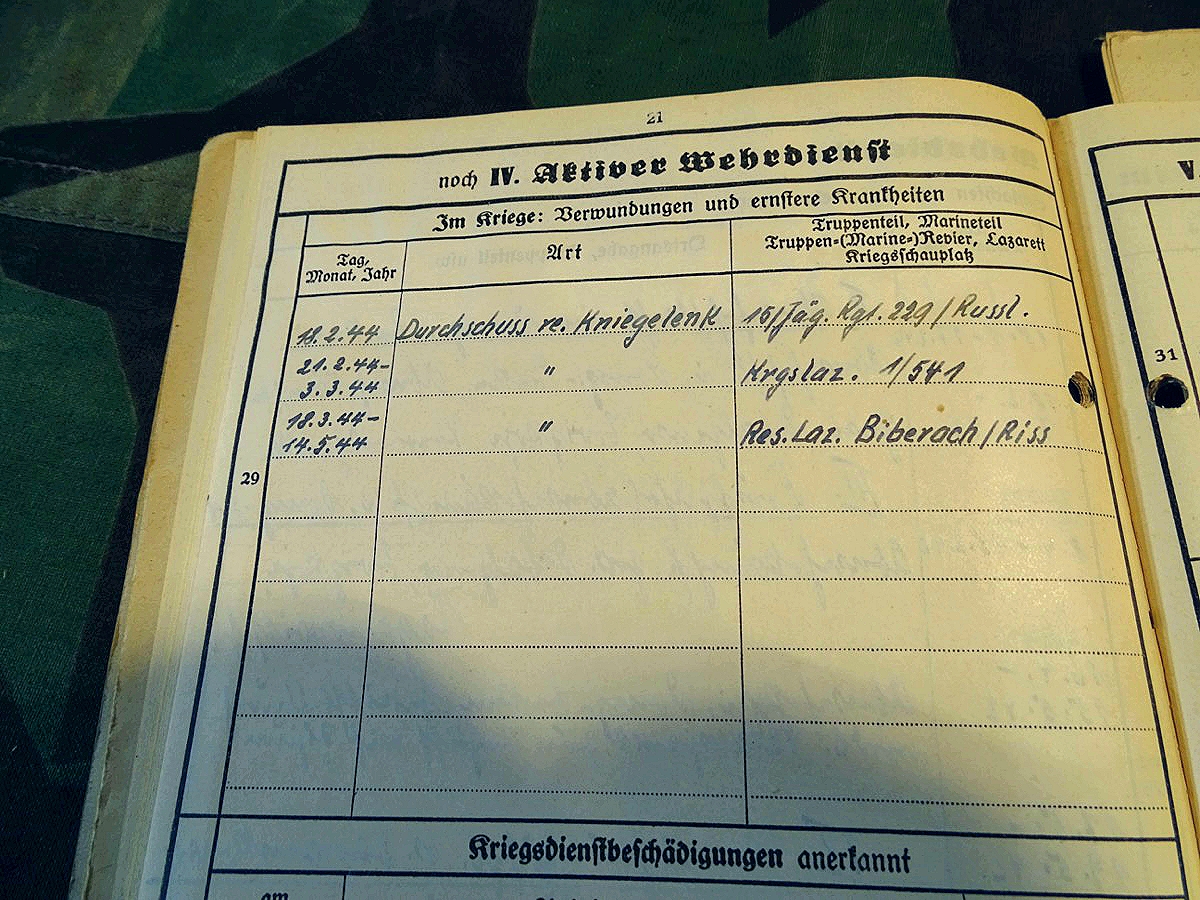 21
noch IV. Aktiver Wehrdienst
Im Kriege: Verwundungen und ernstere Krankheiten
Tag,
Monat, Jahr
Art
Truppenteil, Marineteil
Truppen-(Marine-)Revier, Lazarett
Kriegsschauplatz
18.2.44 Durchschuss re. Kniegelenk 16/Jäg. Rgt. 229/Russl.
21.2.44-
3.3.44 " Krgslaz. 1/541
18.3.44-
14.5.44 " Res. Laz. Biberach/Riss
29
Kriegsdienstbeschädigungen anerkannt
am
V.
31